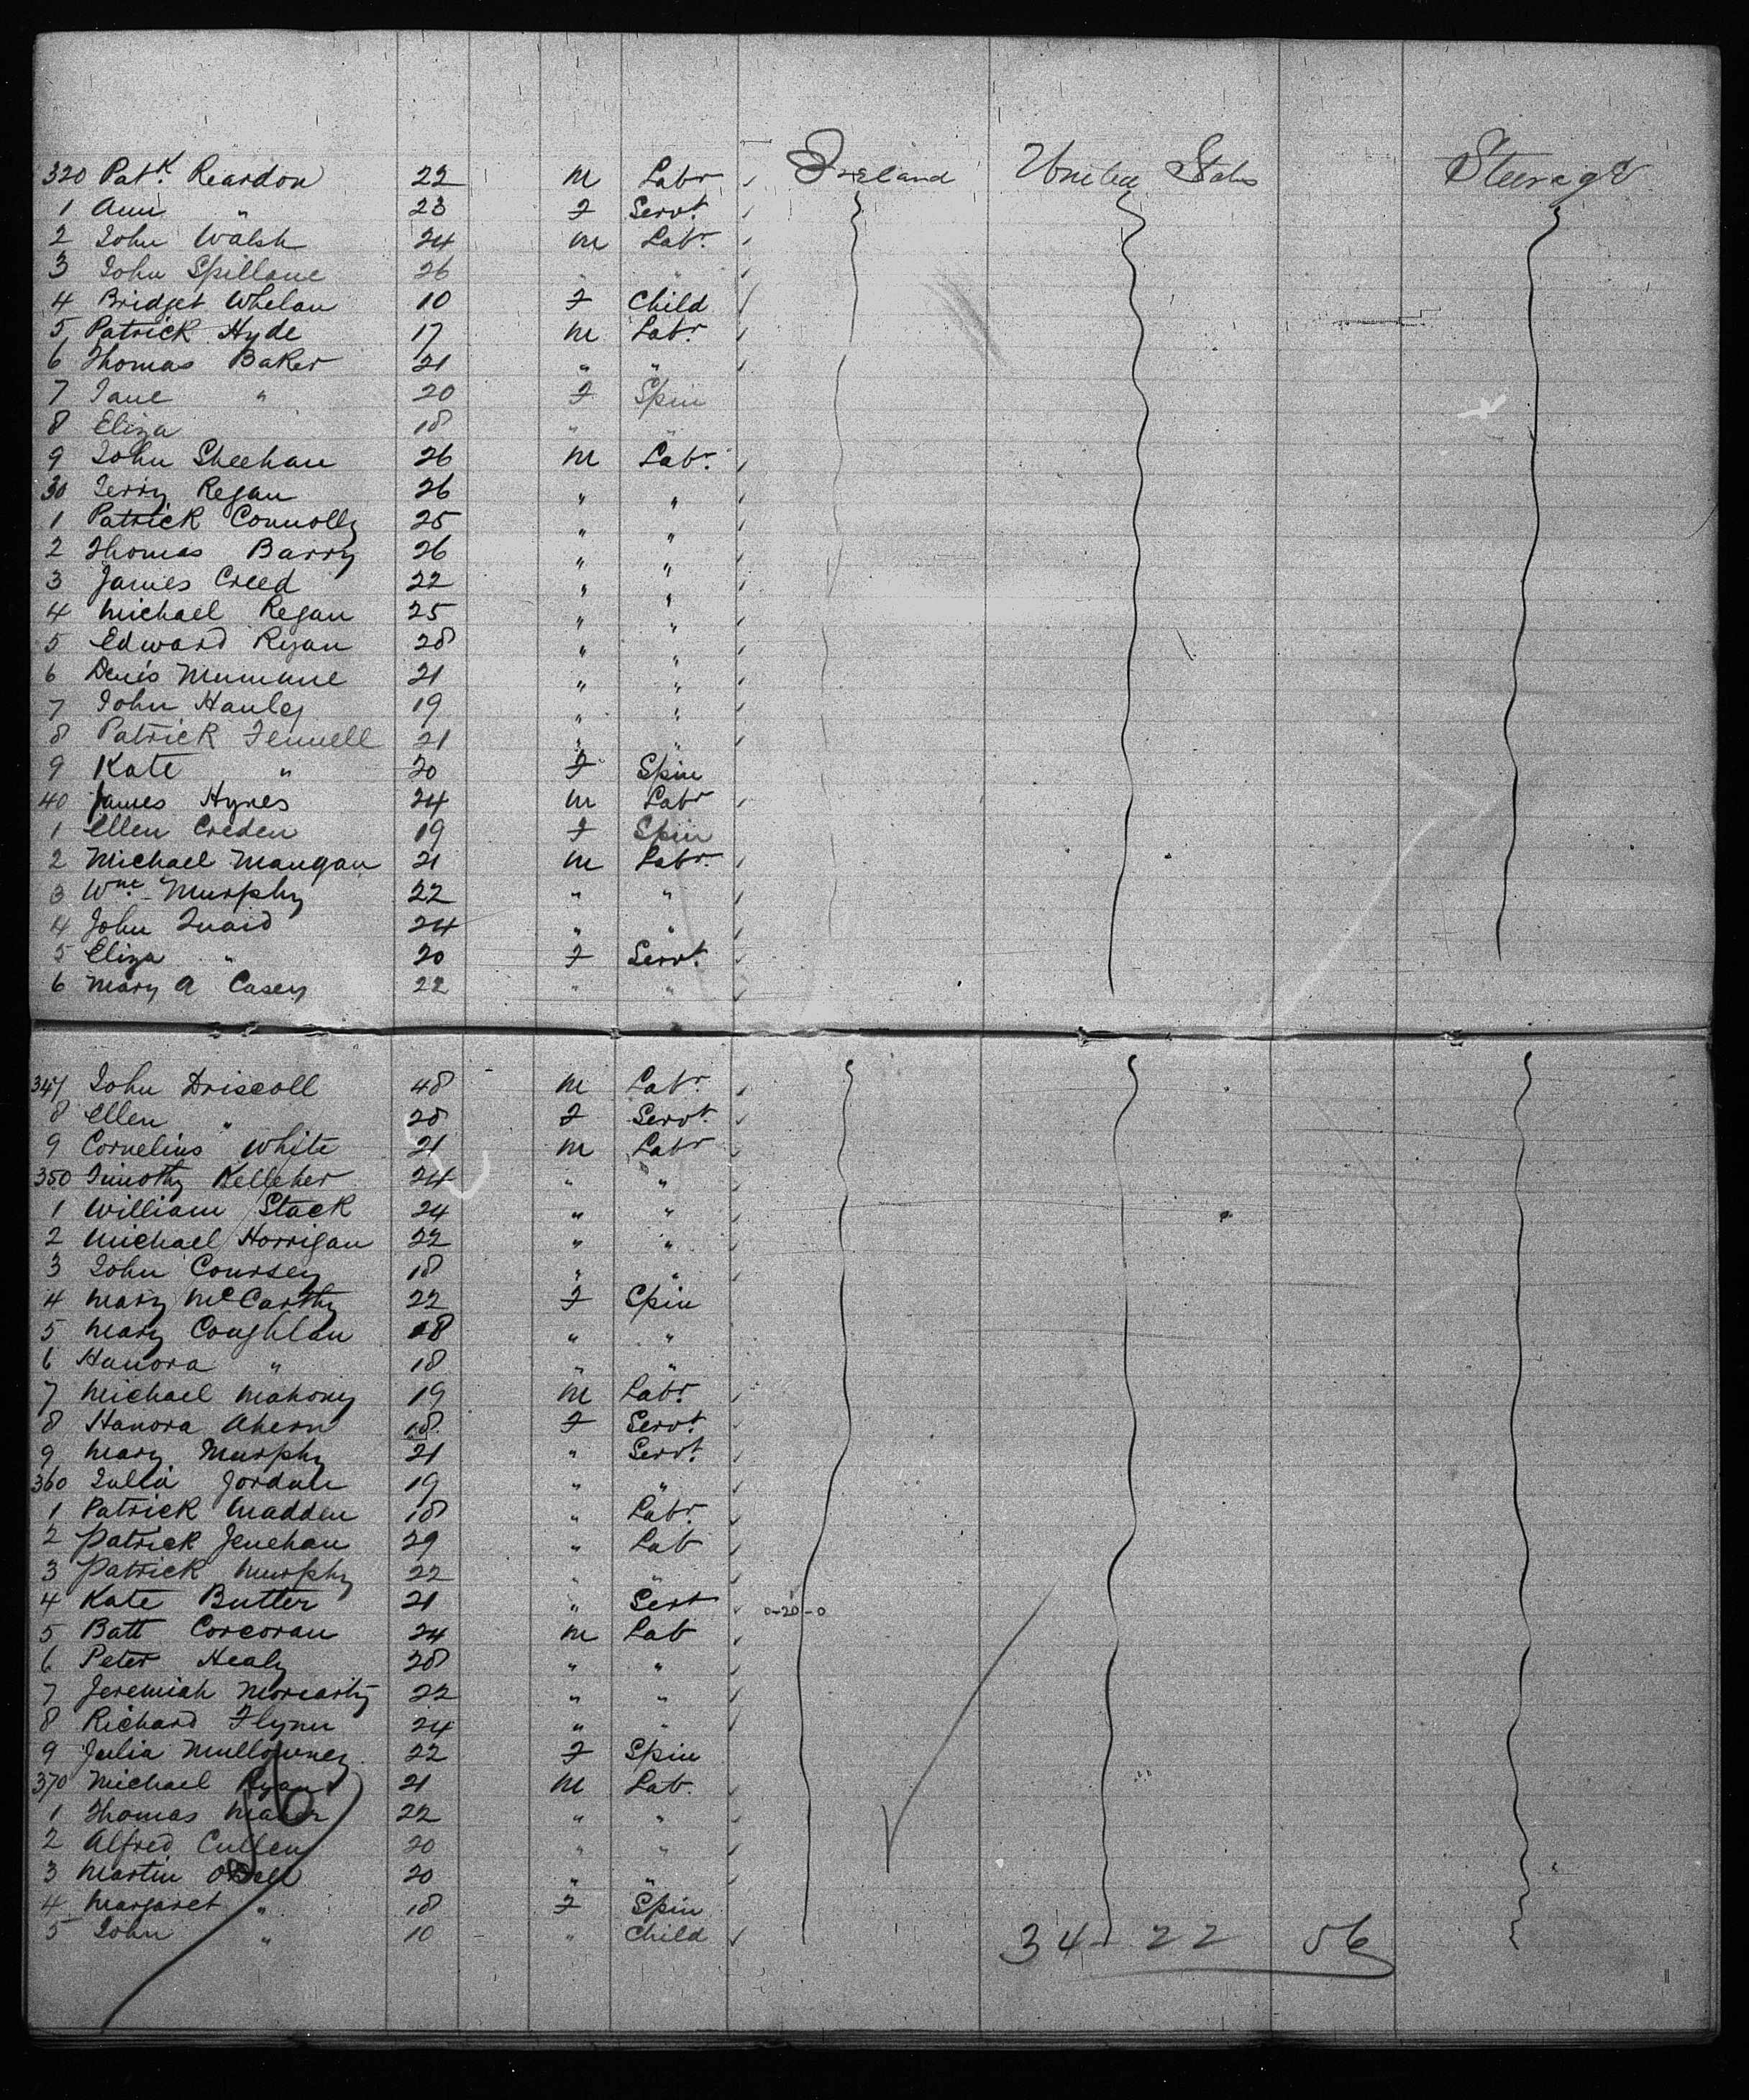 320 Patk. Reardon 22 M Labr Ireland United States Steerage
1 Ann " 23 F Servt.
2 John Walsh 24 M Labr.
3 John Spillane 26 " "
4 Bridget Whelan 10 F Child
5 Patrick Hyde 17 M Labr.
6 Thomas Baker 21 " "
7 Jane " 20 F Spin
8 Eliza 18 " "
9 John Sheehan 26 M Labr.
30 Jerry Regan 26 " "
1 Patrick Connolly 25 " "
2 Thomas Barry 26 " "
3 James Creed 22 " "
4 Michael Regan 25 " "
5 Edward Ryan 28 " "
6 Denis 21 " "
7 John Hanley 19 " "
8 Patrick Fennell 21 " "
9 Kate " 20 F Spin
40 James Hynes 24 M Labr
1 Ellen Creden 19 F Spin
2 Michael Mangan 21 M Labr.
3 Wm. Murphy 22 " "
4 John Quaid 24 " "
5 Eliza " 20 F Servt.
6 Mary A Casey 22 " "
347 John Driscoll 48 M Labr.
8 Ellen " 28 F Servt.
9 Cornelius White 21 M Labr
350 Timothy Kelleher 24 " "
1 William Stack 24 " "
2 Michael Horrigan 22 " "
3 John Coursey 18 " "
4 Mary McCarthy 22 F Spin
5 Mary Coughlan 18 " "
6 Hanora " 18 " "
7 Michael Mahony 19 M Labr.
8 Hanora Ahern 18 F Servt.
9 Mary Murphy 21 " Servt.
360 Julia Jordan 19 " "
1 Patrick Madden 18 " Labr.
2 Patrick 29 " Lab
3 Patrick Murphy 22 " "
4 Kate Butter 21 " Sert 0-20-0
5 Batt Corcoran 24 M Lab
6 Peter Healy 28 " "
7 Jeremiah Moriarty 22 " "
8 Richard Flynn 24 " "
9 Julia Mullowney 22 F Spin
370 Michael Ryan 21 M Lab.
1 Thomas Maher 22 " "
2 Alfred Cullen 20 " "
3 Martin 20 " "
4 Margaret " 18 F Spin
5 John " 10 " Child
34 - 22 56
56